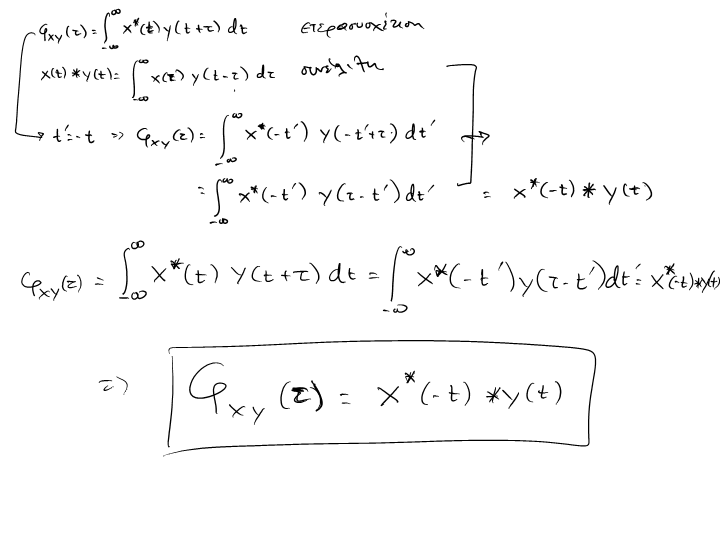 φxy(τ) = ∫_{-∞}^{∞} x*(t) y(t+τ) dt ετεροσυσχέτιση
x(t) * y(t) = ∫_{-∞}^{∞} x(τ) y(t-τ) dτ συνέλιξη
t' = -t ⇒ φxy(τ) = ∫_{-∞}^{∞} x*(-t') y(-t'+τ) dt' →
= ∫_{-∞}^{∞} x*(-t') y(τ-t') dt' = x*(-t) * y(t)
φxy(τ) = ∫_{-∞}^{∞} x*(t) y(t+τ) dt = ∫_{-∞}^{∞} x*(-t') y(τ-t') dt' = x*(-t) * y(t)
⇒ φxy(τ) = x*(-t) * y(t)